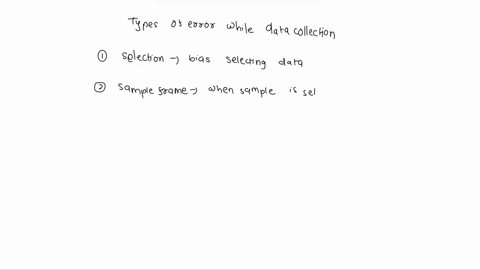 Types of error while data collection
① selection → bias selecting data
② sample frame → when sample is sel